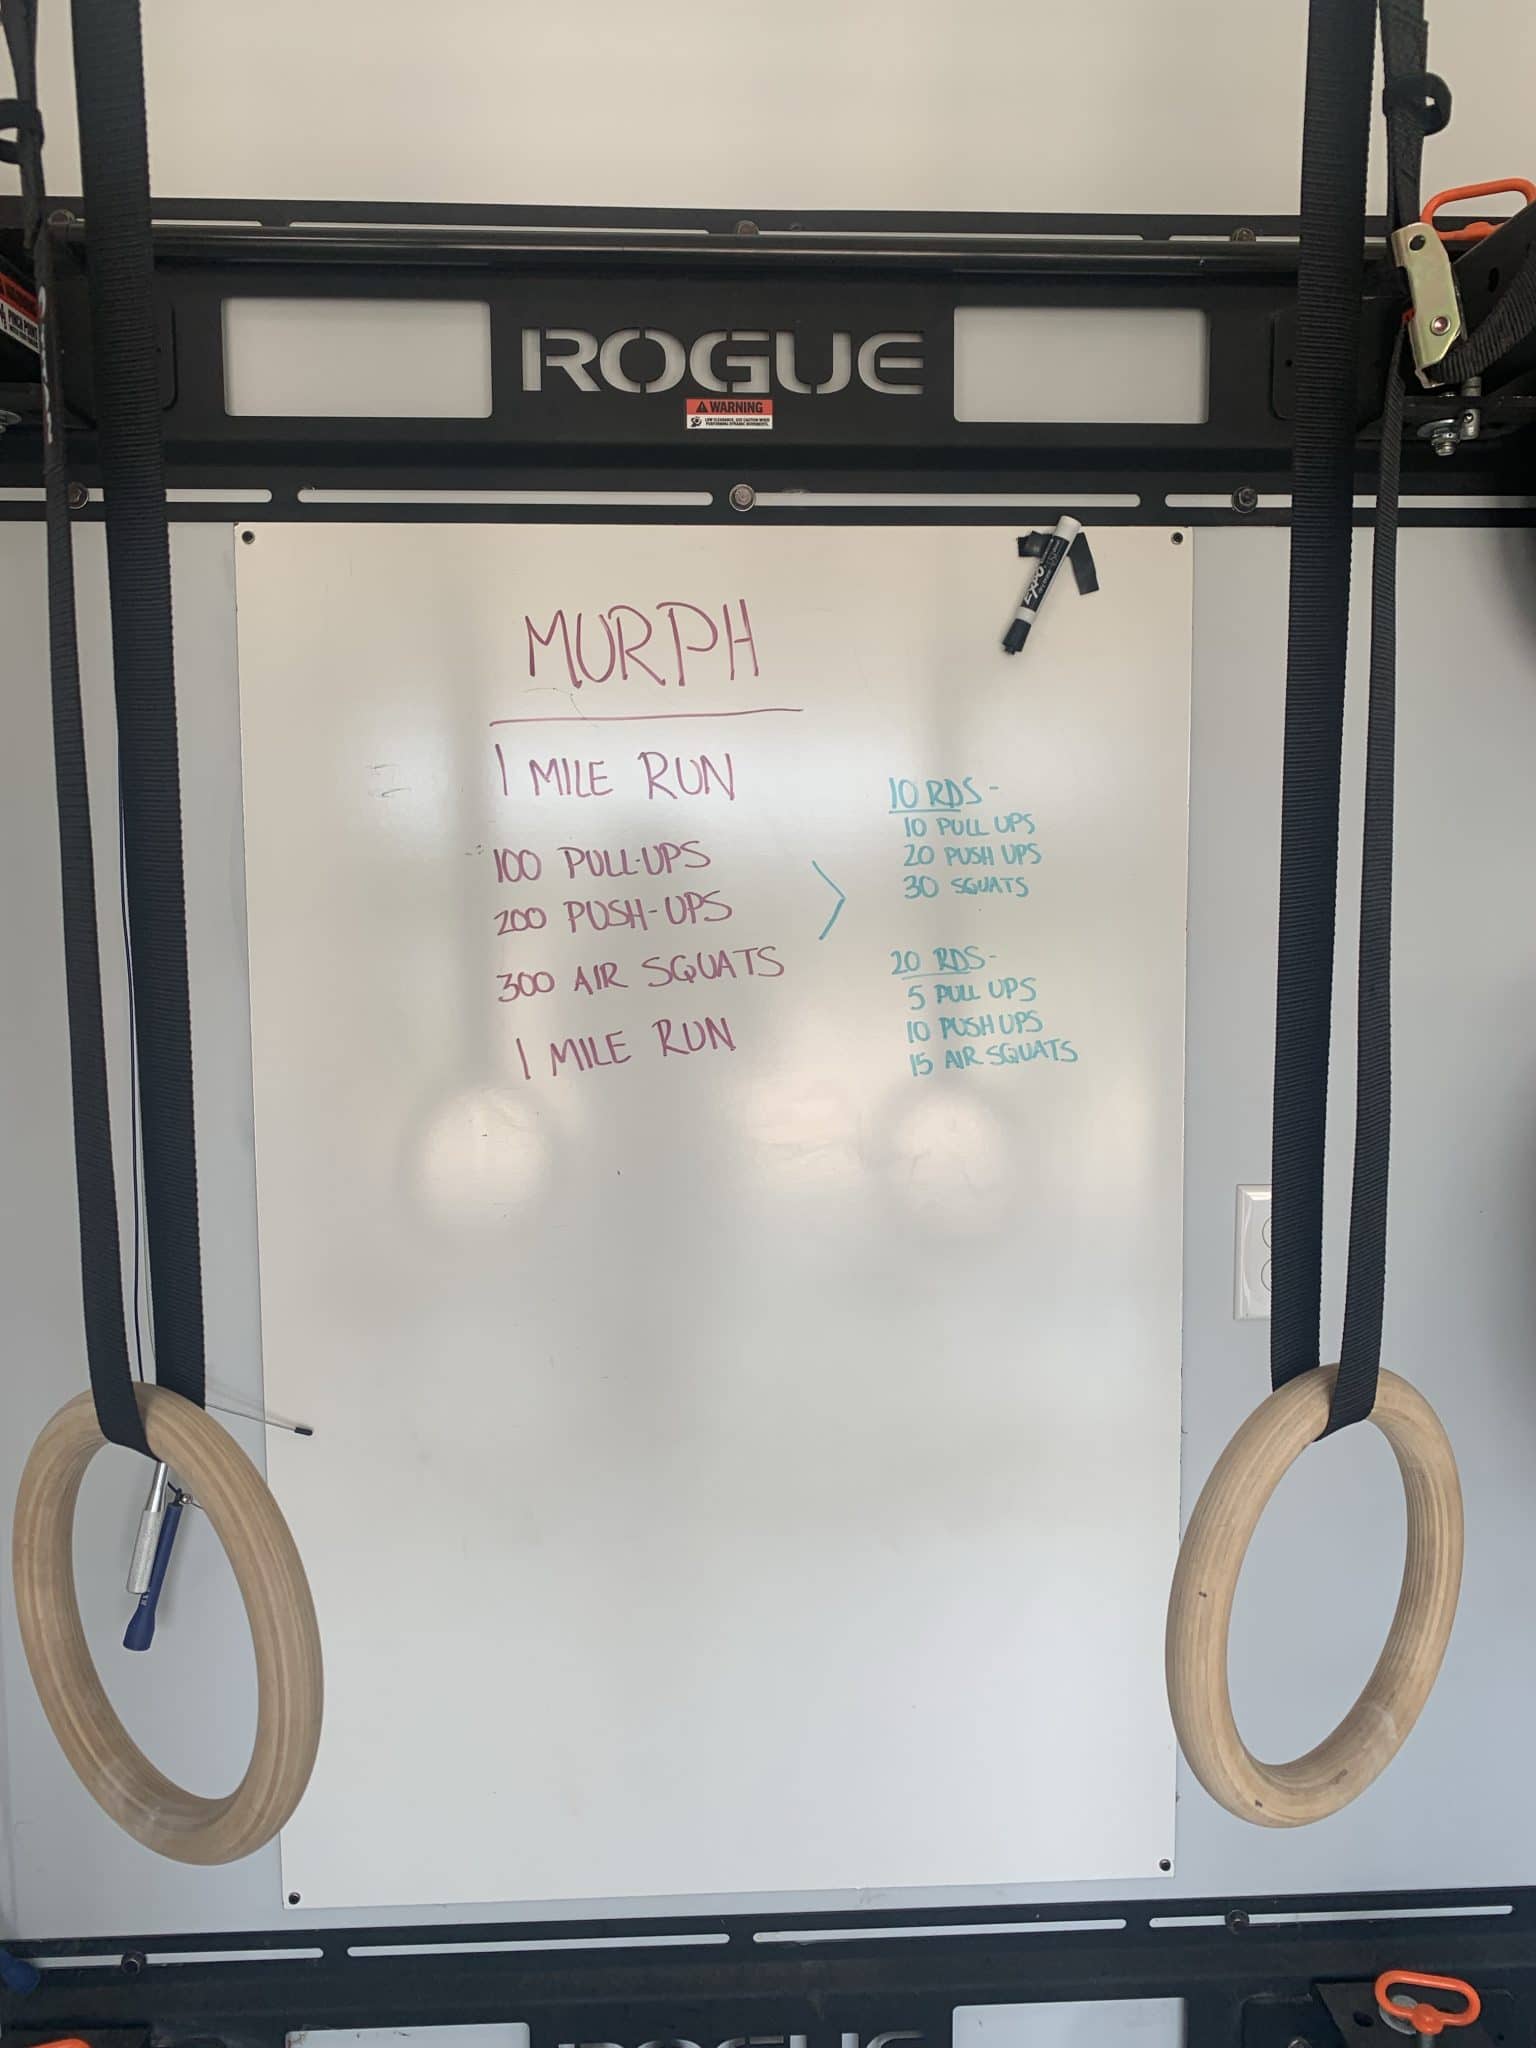 ROGUE
WARNING
LOW CLEARANCE, USE CAUTION WHEN
PERFORMING DYNAMIC MOVEMENTS.
EXPO
MURPH
1 MILE RUN
100 PULL-UPS
200 PUSH-UPS
300 AIR SQUATS
1 MILE RUN
10 RDS-
10 PULL UPS
20 PUSH UPS
30 SQUATS
20 RDS-
5 PULL UPS
10 PUSH UPS
15 AIR SQUATS
ROGUE